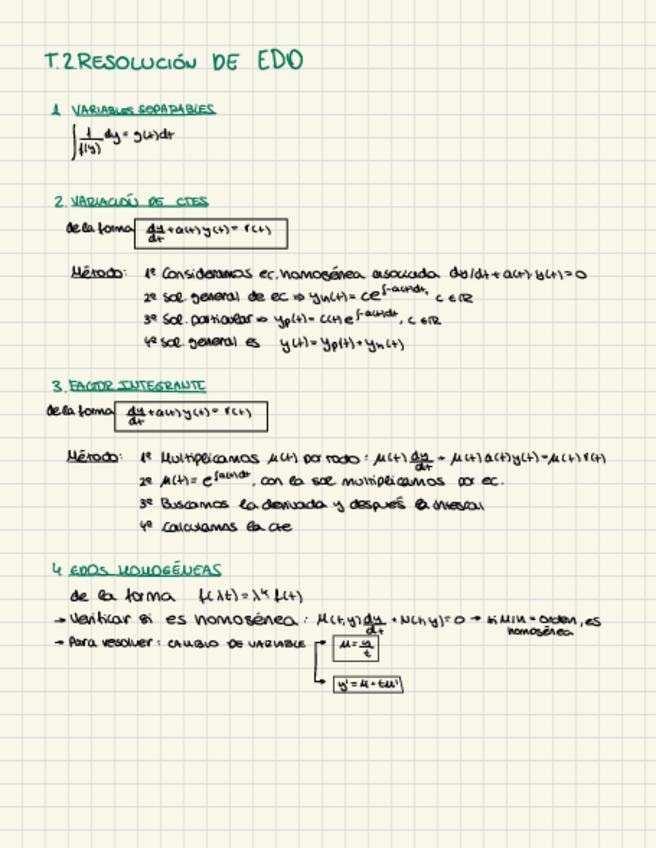 T.2 RESOLUCIÓN DE EDO
1 VARIABLES SEPARABLES
∫ 1/f(y) dy = g(t)dt
2. VARIACIÓN DE CTES
de la forma dy/dt + a(t) y(t) = r(t)
Método: 1º Consideramos ec. homogénea asociada dy/dt + a(t) y(t) = 0
2º Sol. general de ec ⇒ yh(t) = ce^∫-a(t)dt, c ∈ ℝ
3º Sol. particular ⇒ yp(t) = c(t) e^∫-a(t)dt, c ∈ ℝ
4º Sol. general es y(t) = yp(t) + yh(t)
3. FACTOR INTEGRANTE
de la forma dy/dt + a(t) y(t) = r(t)
Método: 1º Multiplicamos μ(t) por todo: μ(t) dy/dt + μ(t) a(t) y(t) = μ(t) r(t)
2º μ(t) = e^∫a(t)dt, con la sol multiplicamos por ec.
3º Buscamos la derivada y después la integral
4º Calculamos la cte
4 EDOS HOMOGÉNEAS
de la forma f(λt) = λᵏ f(t)
→ Verificar si es homogénea: M(t,y) dy/dt + N(t,y) = 0 → si M/N = orden, es
homogénea
→ Para resolver: CAMBIO DE VARIABLE → μ = y/t
→ y' = μ + tμ'